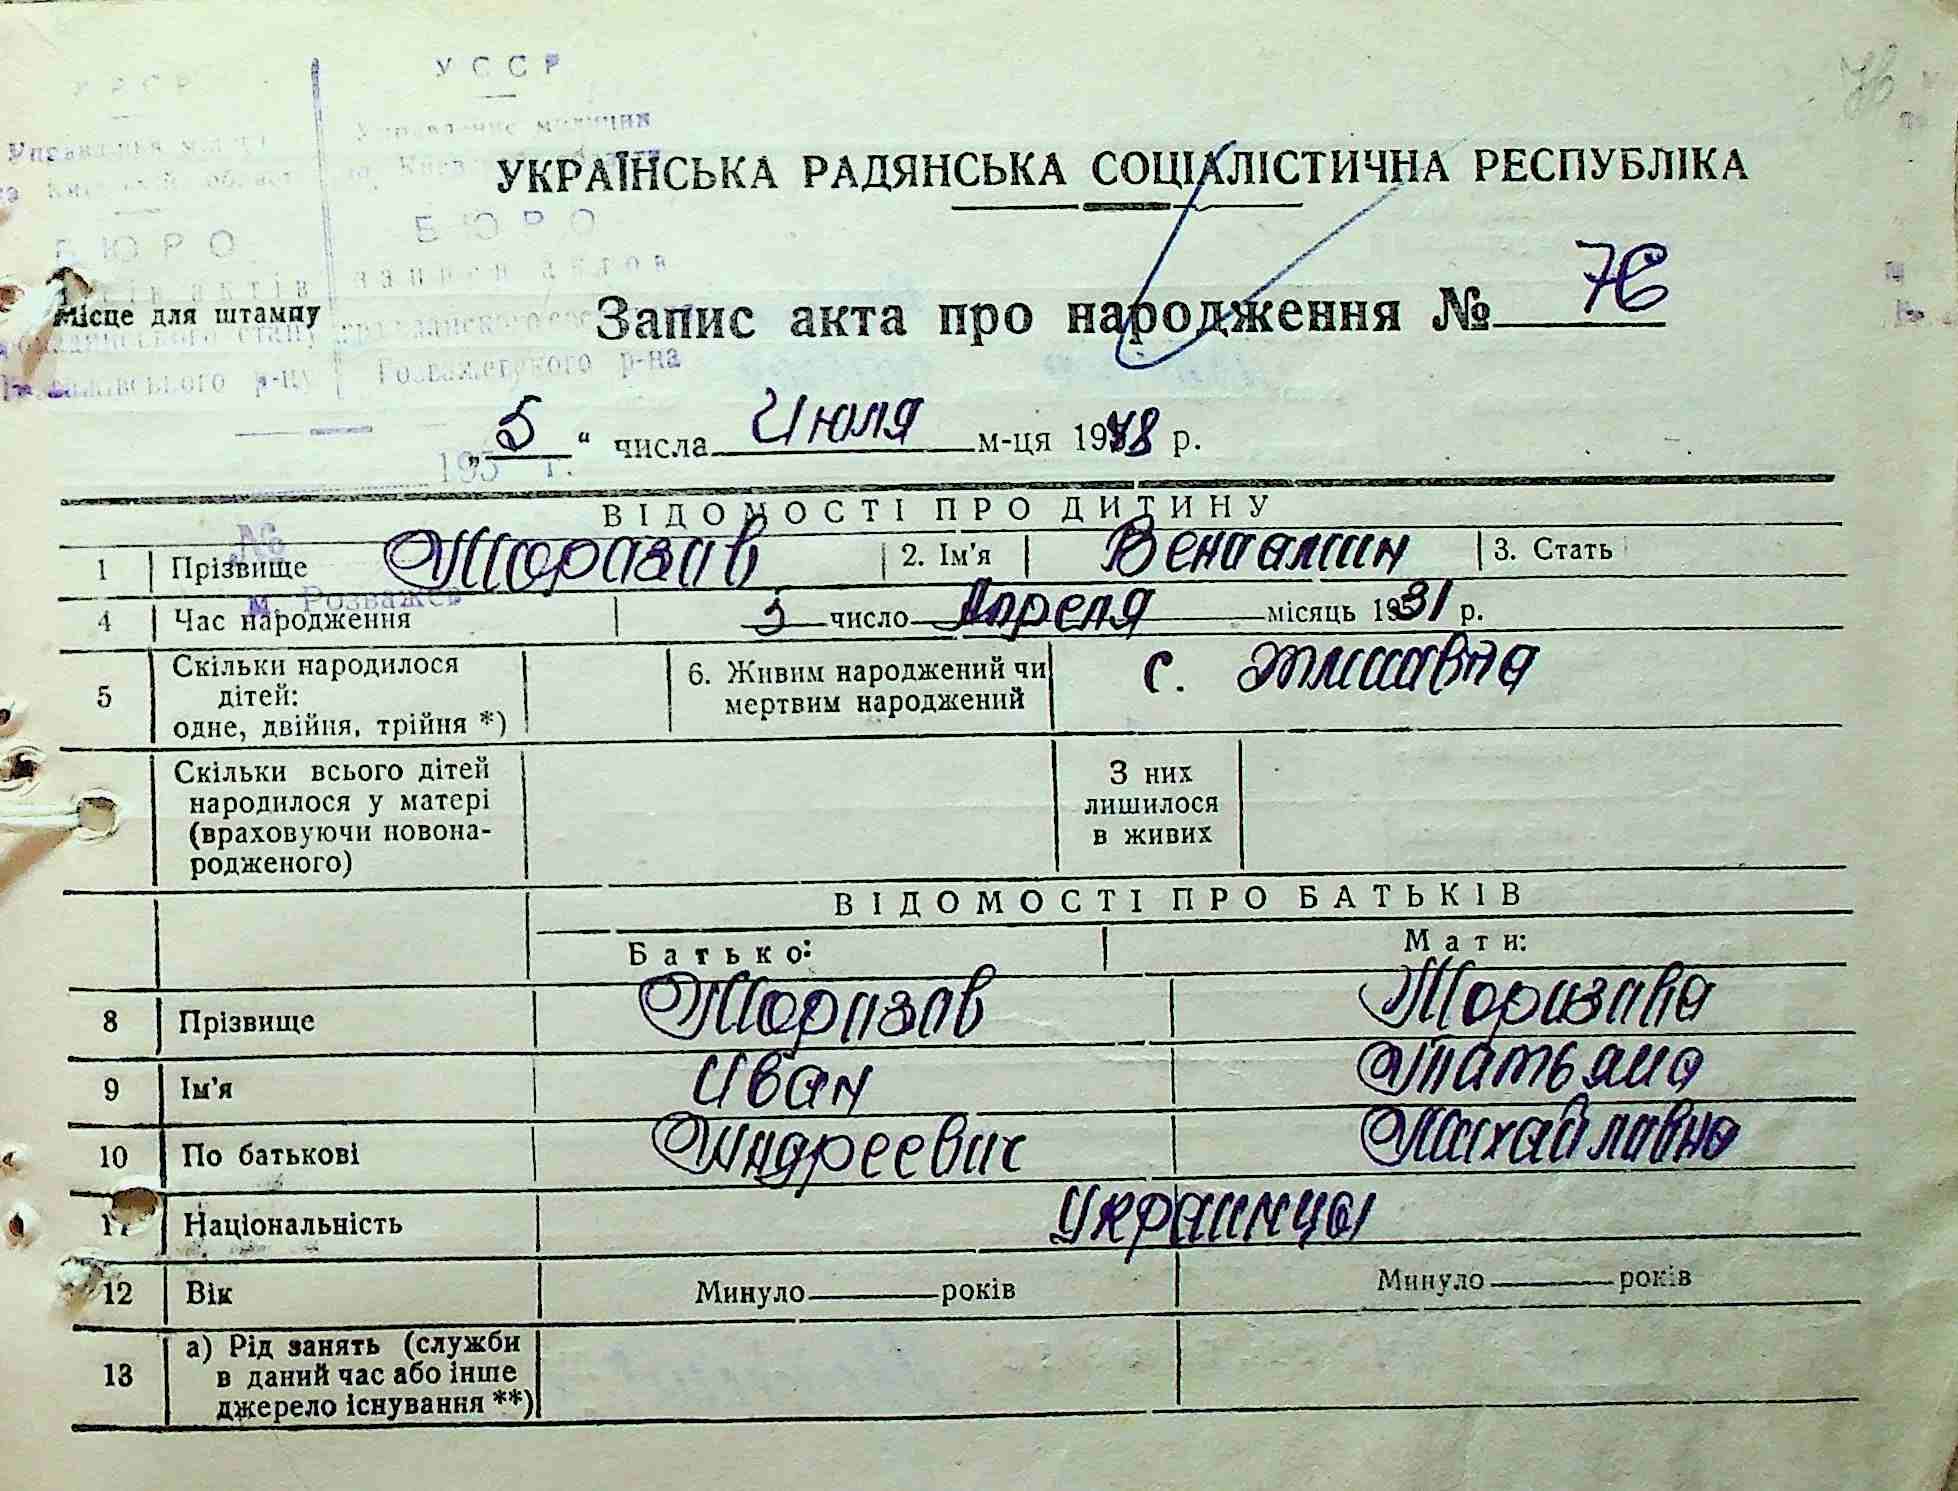 УССР
БЮРО
УКРАЇНСЬКА РАДЯНСЬКА СОЦІАЛІСТИЧНА РЕСПУБЛІКА
БЮРО
Місце для штампу
Запис акта про народження № 76
Розважевского р-на
„5“ числа Июля м-ця 1948 р.
195 г.
ВІДОМОСТІ ПРО ДИТИНУ
1 Прізвище Морозов 2. Ім'я Вениамин 3. Стать
м. Розважев
4 Час народження 3 число Апреля місяць 1931 р.
5 Скільки народилося дітей: одне, двійня, трійня *) 6. Живим народжений чи мертвим народжений с.
Скільки всього дітей народилося у матері (враховуючи новона-родженого) З них лишилося в живих
ВІДОМОСТІ ПРО БАТЬКІВ
Батько: Мати:
8 Прізвище Морозов Морозова
9 Ім'я Иван Татьяна
10 По батькові Андреевич Михайловна
11 Національність украинцы
12 Вік Минуло років Минуло років
13 а) Рід занять (служби в даний час або інше джерело існування **)